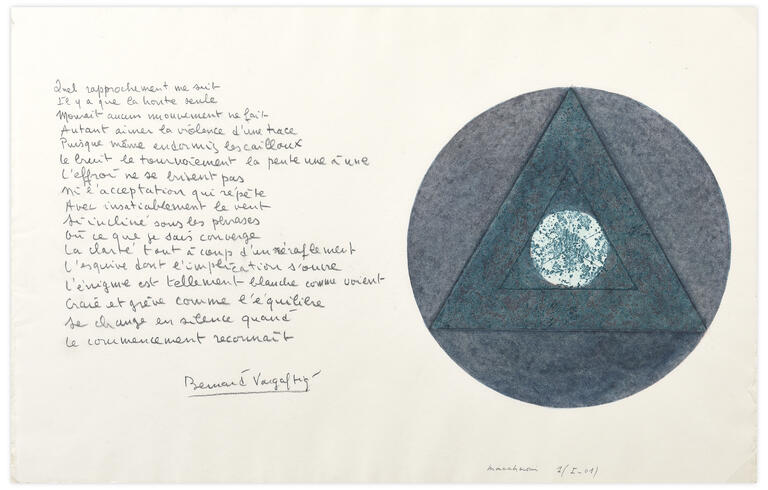 Quel rapprochement me suit
Il y a que la honte seule
Mourait aucun mouvement ne fait
Autant aimer la violence d'une trace
Puisque même endormis les cailloux
Le bruit le tournoiement la pente une à une
L'effroi ne se brisent pas
Ni l'acceptation qui répète
Avec insatiablement le vent
Si incliné sous les phrases
Où ce que je sais converge
La clarté tout à coup d'un éraflement
L'esquive dont l'implication s'ouvre
L'énigme est tellement blanche comme voient
Craie et grève comme l'équilibre
Se change en silence quand
Le commencement reconnaît
Bernard Vargaftig
1/(I-01)